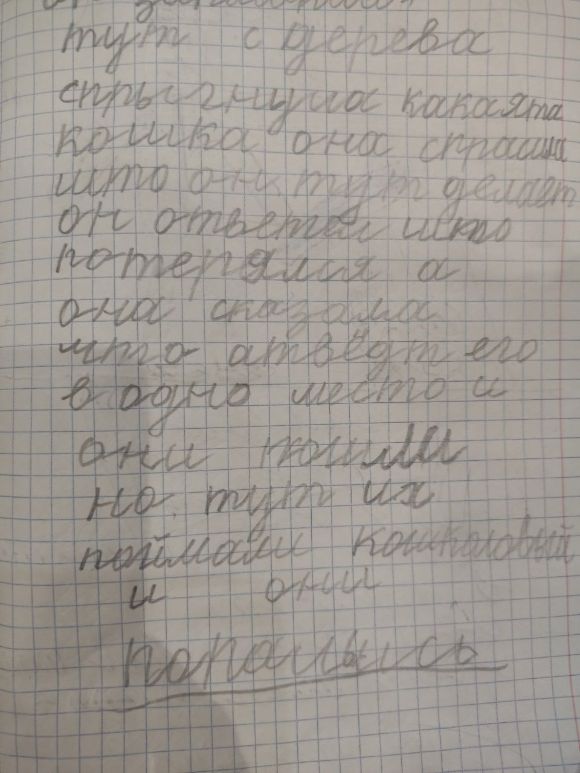 тут с дерева
спрыгнула какаята
кошка она спрашла
што он тут делает
он ответел што
потерялся а
она сказала
что атведт его
в одно место и
они пошли
но тут их
поймали кошколовый
и они
попалысь